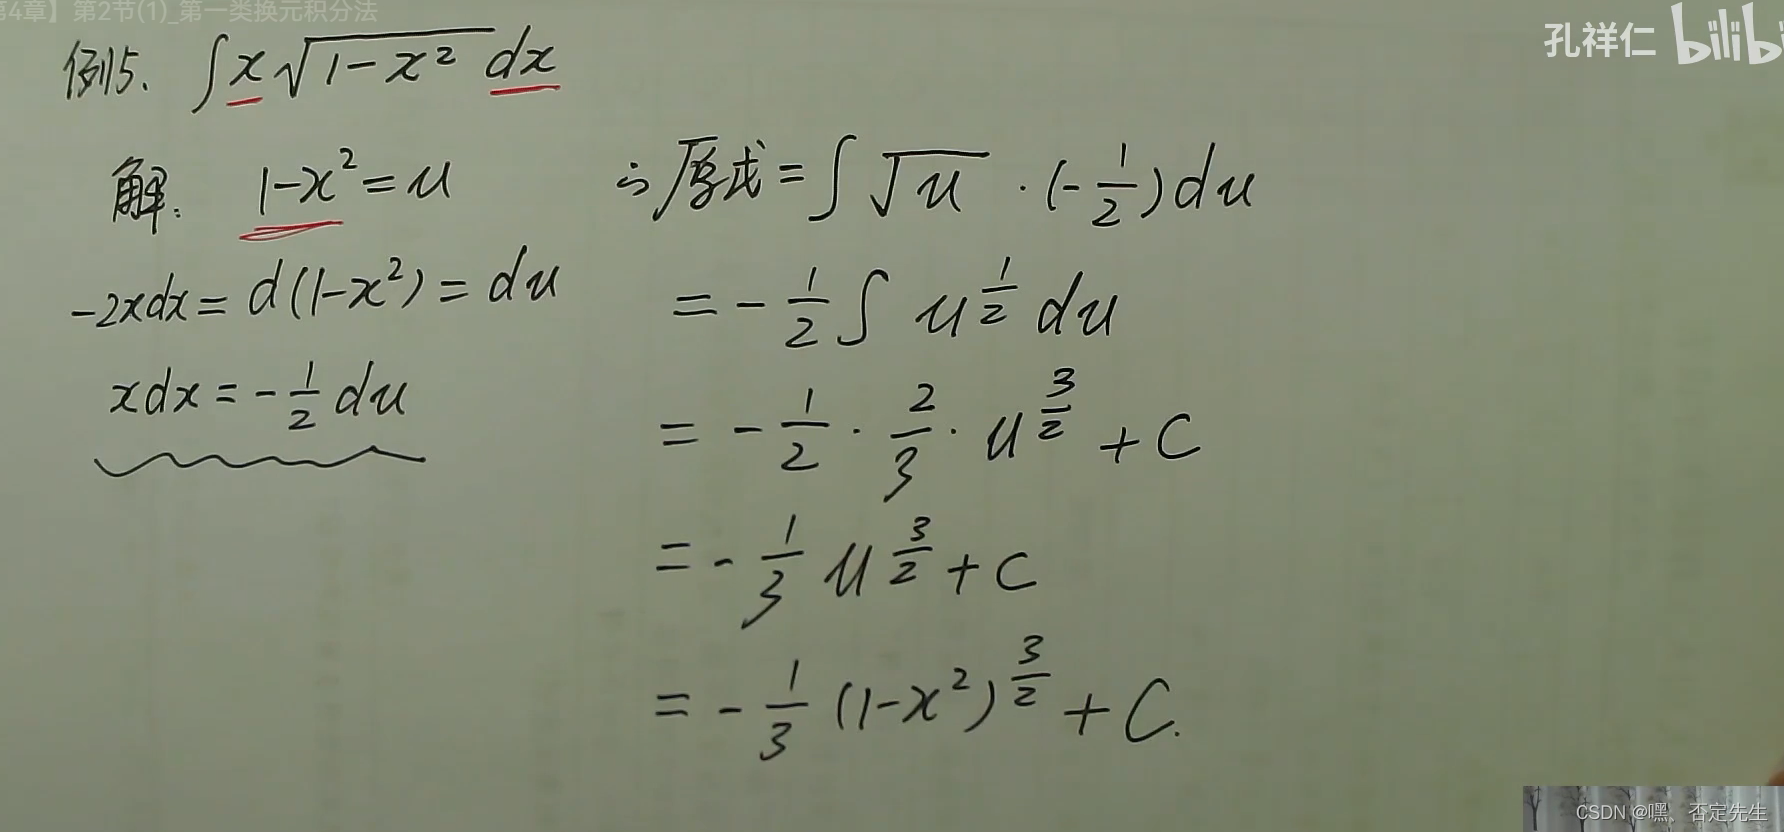 第4章】第2节(1)_第一类换元积分法
孔祥仁 bilibi
例5. ∫x√(1-x²) dx
解: 1-x²=u
-2xdx=d(1-x²)=du
xdx=-1/2 du
∴原式=∫√u ·(-1/2)du
=-1/2∫ u^(1/2) du
=-1/2·2/3·u^(3/2)+C
=-1/3 u^(3/2)+C
=-1/3 (1-x²)^(3/2)+C.
CSDN @嘿、否定先生